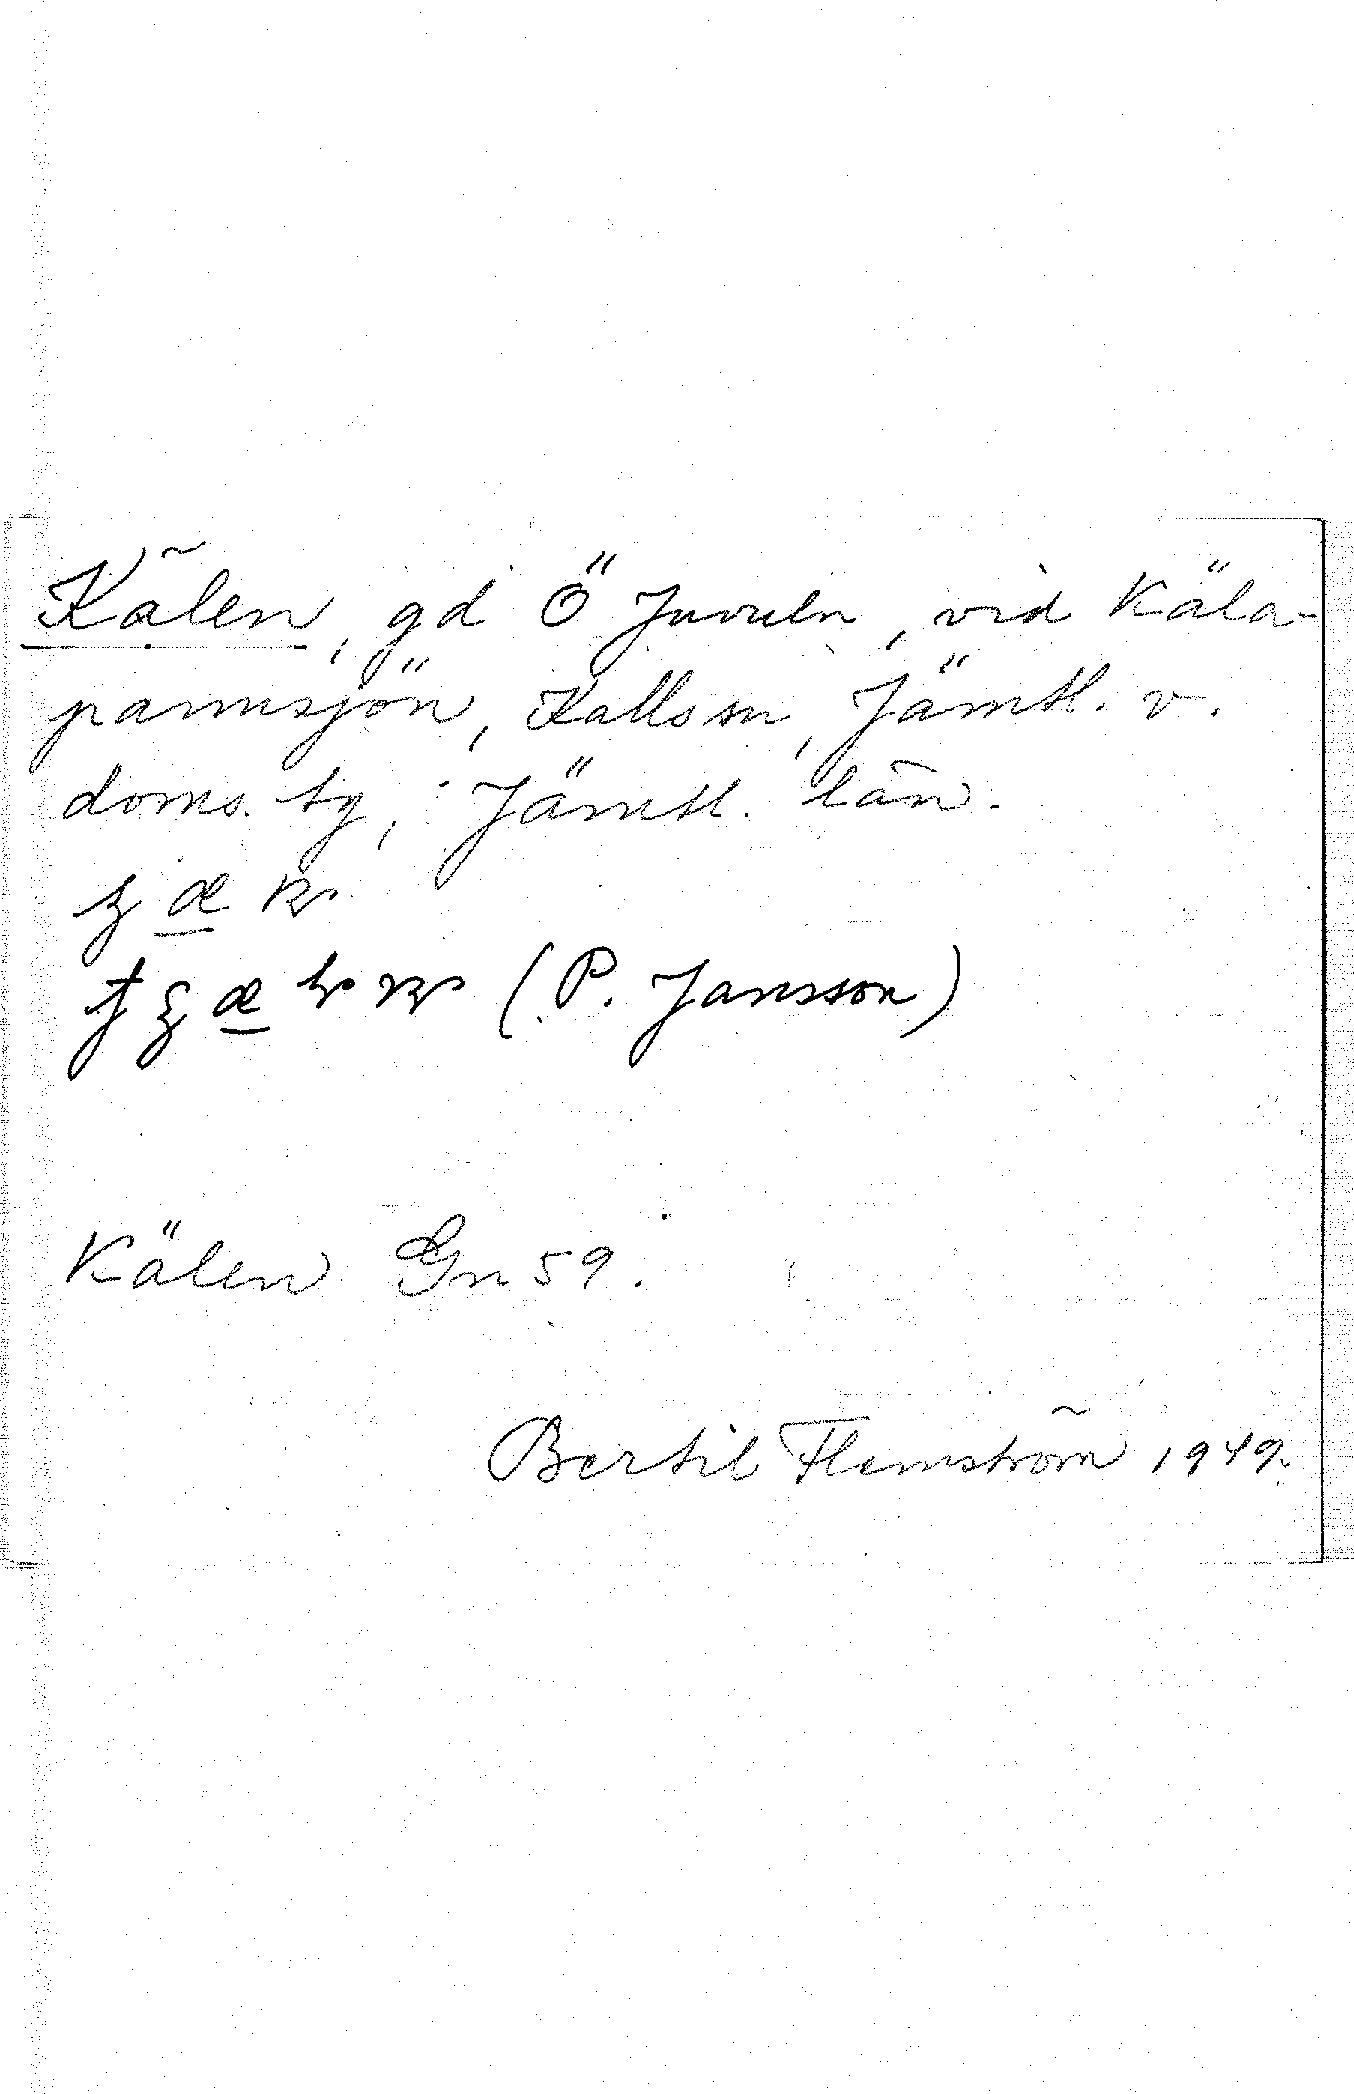 Kälen, gd Ö Juveln, vid Käla-
parmsjön, Kalls sn, Jämtl. v.
doms. tg, Jämtl. län.
(P. Jansson)
Kälen Gn 59.
Bertil Flemström 1949.